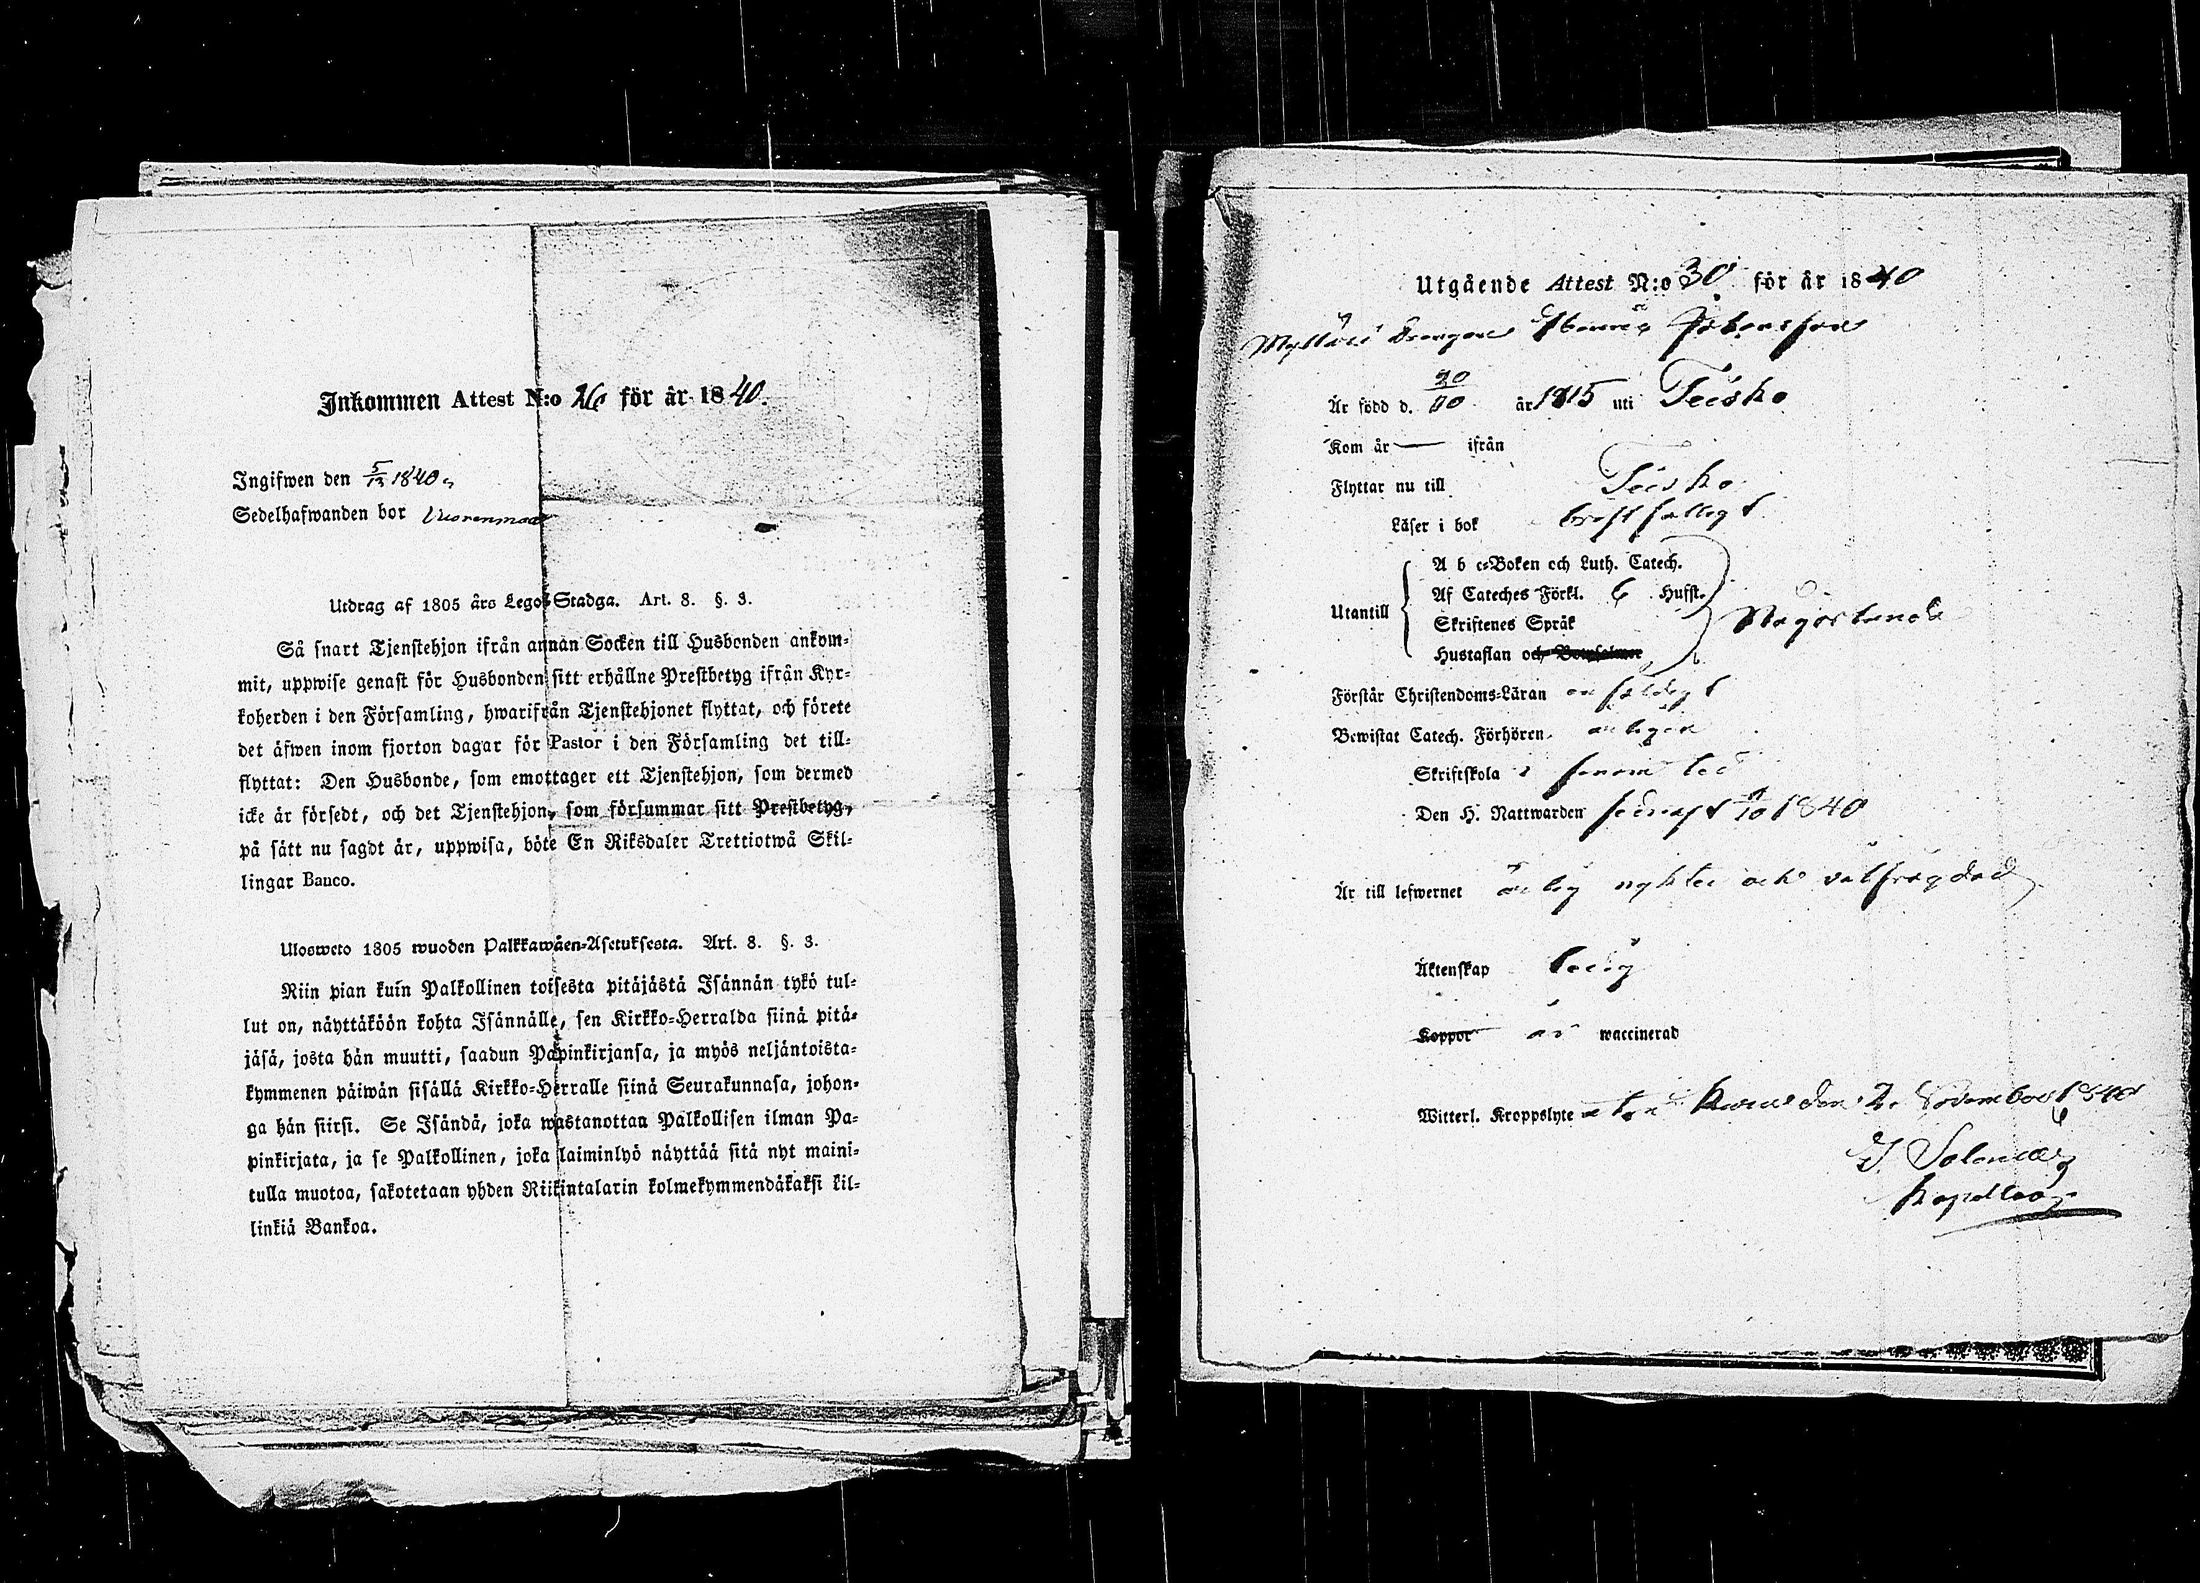 Inkommen Attest N:o 26 för år 1840.
Ingifwen den 5/12 1840.
Sedelhafwanden bor Vuorenmaa
Utdrag af 1805 års Lego-Stadga. Art. 8. §. 3.
Så snart Tjenstehjon ifrån annan Socken till Husbonden ankom-
mit, uppwise genast för Husbonden sitt erhållne Prestbetyg ifrån Kyr-
koherden i den Församling, hwarifrån Tjenstehjonet flyttat, och förete
det äfwen inom fjorton dagar för Pastor i den Församling det till-
flyttat: Den Husbonde, som emottager ett Tjenstehjon, som dermed
icke är försedt, och det Tjenstehjon, som försummar sitt Prestbetyg,
på sätt nu sagdt är, uppwisa, böte En Riksdaler Trettiotwå Skil-
lingar Banco.
Ulosweto 1805 wuoden Palkkawäen-Asetuksesta. Art. 8. §. 3.
Niin pian kuin Palkollinen toisesta pitäjästä Isännän tykö tul-
lut on, näyttäköön kohta Isännälle, sen Kirkko-Herralda siinä pitä-
jäsä, josta hän muutti, saadun Papinkirjansa, ja myös neljäntoista-
kymmenen päiwän sisällä Kirkko-Herralle siinä Seurakunnasa, johon-
ga hän siirsi. Se Isändä, joka wastanottaa Palkollisen ilman Pa-
pinkirjata, ja se Palkollinen, joka laiminlyö näyttää sitä nyt maini-
tulla muotoa, sakotetaan yhden Riikintalarin kolmekymmendäkaksi kil-
linkiä Bankoa.
Utgående Attest N:o 30 för år 1840
Drengen Johansson
Är född d. 20/10 år 1815 uti Teisko
Kom år — ifrån
Flyttar nu till Teisko
Läser i bok bristfälligt
Utantill
A b c-Boken och Luth. Catech.
Af Cateches Förkl. 6 Husst.
Skriftenes Språk
Hustaflan och Botpsalmer
Någorlunda
Förstår Christendoms-Läran enfaldigt
Bewistat Catech. Förhören årligen
Skriftskola
Den H. Nattwarden senast 1840
Är till lefwernet ärlig nykter och välfrägdad
Äktenskap ledig
Koppor är waccinerad
Witterl. Kroppslyte utan Kuru den 2 November 1840
Kapellan